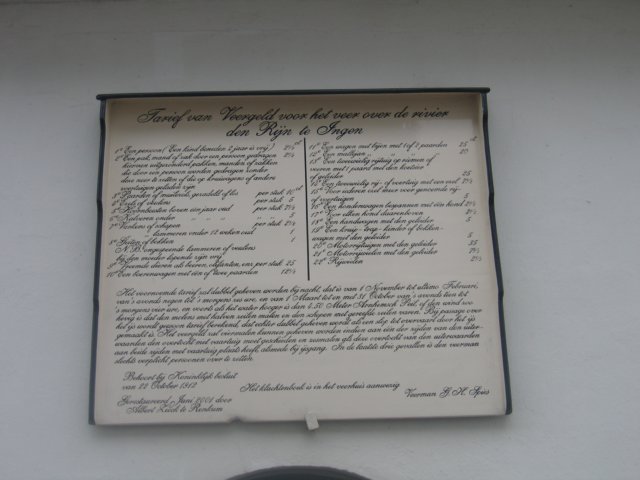 Tarief van Veergeld voor het veer over de rivier
den Rijn te Ingen
1e Een persoon (Een kind beneden 2 jaar is vrij) 2½ ct
2e Een pak, mand of zak door een persoon gedragen 2½
hiervan uitgezonderd pakken, manden of zakken
die door een persoon worden gedragen zonder
deze neer te zetten of die op kruiwagens of andere
voertuigen geladen zijn
3e Paarden of muilezels, gezadeld of los per stuk 10 ct
4e Ezels of stieren per stuk 5
5e Hoornbeesten boven één jaar oud per stuk 7½
6e Kalveren onder „ „ „ „ „ 5
7e Varkens of schapen per stuk 2½
„ lammeren onder 12 weken oud „ 1
8e Geiten of bokken 1
N.B. Ongespeende lammeren of veulens
bij den moeder lopende zijn vrij
9e Speende dieren als beeren, olifanten, enz per stuk 25
10e Een boerenwagen met één of twee paarden 12½
11e Een wagen met bijen met 1 of 2 paarden 25 ct
12e Een malle jan „ „ „
13e Een tweewielig rijtuig op riemen of
veeren met 1 paard met den koetsier
of geleider 25
14e Een tweewielig rij- of voertuig met een ezel
15e Voor iedere ezel meer voor genoemde rij-
of voertuigen 5
16e Een hondenwagen bespannen met één hond
17e Voor elken hond daarenboven
18e Een handwagen met den geleider 5
19e Een kruip- trap- kinder of bokken-
wagen met den geleider 5
20e Motorrijtuigen met den geleider 35
21e Motorrijwielen met den geleider 7½
22e Rijwielen 2½
Het voornoemde tarief zal dubbel geheven worden bij nacht, dat is van 1 November tot ultimo Februari,
van 's avonds negen tot 's morgens zes ure, en van 1 Maart tot en met 31 October van 's avonds tien tot
's morgens vier ure, en voorts als het water hooger is dan 8.50 Meter Arnhemsch Peil of den wind zoo
hevig is dat den molens met halven zeilen malen en den schepen met gereefde zeilen varen. Bij passage over
het ijs wordt gewoon tarief berekend, dat echter dubbel geheven wordt als een slop tot overvaart door het ijs
gemaakt is. Het veergeld zal viermaalen kunnen geheven worden indien aan één der zijden van den uiter-
waarden den overtocht met vaartuig moet geschieden en zesmalen als deze overtocht van den uiterwaarden
aan beide zijden met vaartuig plaats heeft, alsmede bij ijsgang. In de laatste drie gevallen is den veerman
slechts verplicht personen over te zetten.
Behoort bij Koninklijk besluit
van 22 October 1912
Het klachtenboek is in het veerhuis aanwezig
Veerman G. H. Spies
Gerestaureerd, Juni 2001 door
Albert Zück te Renkum